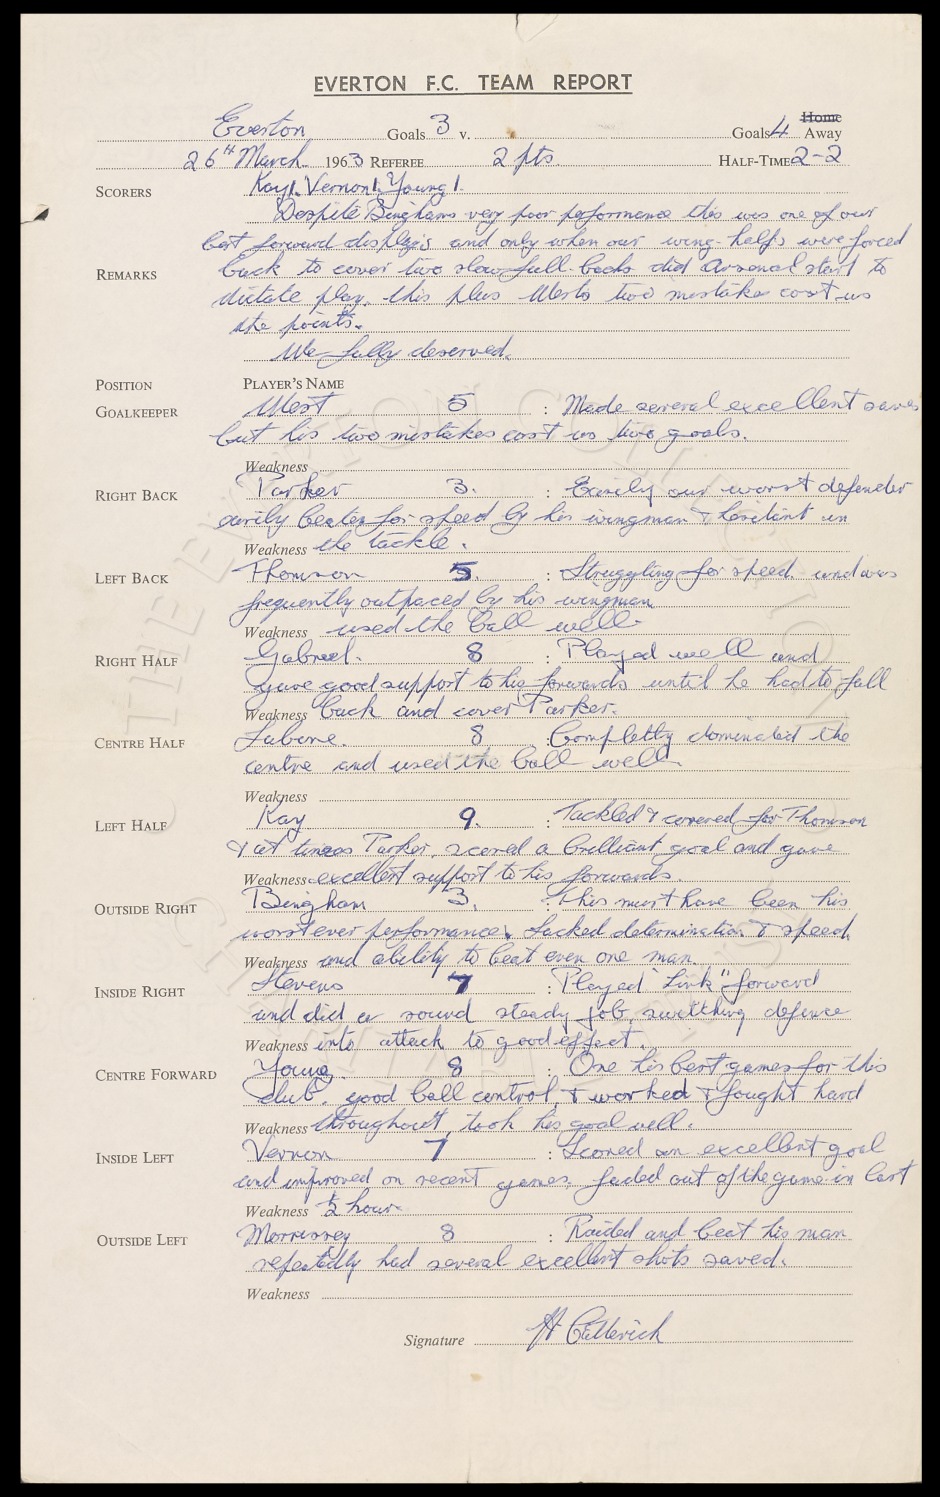 EVERTON F.C. TEAM REPORT
Everton Goals 3 v. Goals 4 Home Away
26TH March 1963 REFEREE 2 pts HALF-TIME 2-2
SCORERS Kay 1. Vernon 1. Young 1.
Despite Binghams very poor performance this was one of our
best forward displays and only when our wing-halfs were forced
REMARKS back to cover two slow full-backs did Arsenal start to
dictate play, this plus Wests two mistakes cost us
the points.
We fully deserved.
POSITION PLAYER'S NAME
GOALKEEPER West 5 : Made several excellent saves
but his two mistakes cost us two goals.
Weakness
RIGHT BACK Parker 3. : Easily our worst defender
easily beaten for speed by his wingman & hesitant in
Weakness the tackle.
LEFT BACK Thomson 5. : Struggling for speed and was
frequently outpaced by his wingman
Weakness used the ball well.
RIGHT HALF Gabriel. 8 : Played well and
gave good support to his forwards until he had to fall
Weakness back and cover Parker.
CENTRE HALF Labone. 8 : Completly dominated the
centre and used the ball well.
Weakness
LEFT HALF Kay 9. : Tackled & covered for Thomson
& at times Parker, scored a brilliant goal and gave
Weakness excellent support to his forwards.
OUTSIDE RIGHT Bingham 3. : This must have been his
worst ever performance. Lacked determination & speed
Weakness and ability to beat even one man.
INSIDE RIGHT Stevens 7 : Played "Link" forward
and did a sound steady job, switching defence
Weakness into attack to good effect.
CENTRE FORWARD Young. 8 : One his best games for this
club. good ball control, & worked & fought hard
Weakness throughout, took his goal well.
INSIDE LEFT Vernon 7 : Scored an excellent goal
and improved on recent games, faded out of the game in last
Weakness ½ hour.
OUTSIDE LEFT Morrissey 8 : Raided and beat his man
repeatedly had several excellent shots saved.
Weakness
Signature H Catterick
THE EVERTON COLLECTION